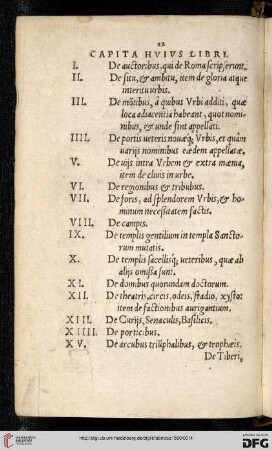 22
CAPITA HVIVS LIBRI.
I. De auctoribus, qui de Roma scripserunt.
II. De situ, & ambitu, item de gloria atque
interitu urbis.
III. De mōtibus, a quibus Vrbi additi, quæ
loca adiacentia habeant, quot nomi-
nibus, & unde sint appellati.
IIII. De portis veteris nouæq; Vrbis, et quàm
uarijs nominibus eædem appellatæ.
V. De uijs intra Vrbem & extra mœnia,
item de cliuis in urbe.
VI. De regionibus & tribubus.
VII. De foris, ad splendorem Vrbis, & ho-
minum necessitatem factis.
VIII. De campis.
IX. De templis gentilium in templa Sancto-
rum mutatis.
X. De templis sacellisq; ueteribus, quæ ab
alijs omissa sunt.
XI. De domibus quorundam doctorum.
XII. De theatris, circis, odeis, stadio, xysto:
item de factionibus aurigantium.
XIII. De Curijs, Senaculis, Basilicis.
XIIII. De porticibus.
XV. De arcubus triūphalibus, & trophæis.
De Tiberi,
UNIVERSITÄTS-
BIBLIOTHEK
HEIDELBERG
Gefördert durch die
DFG